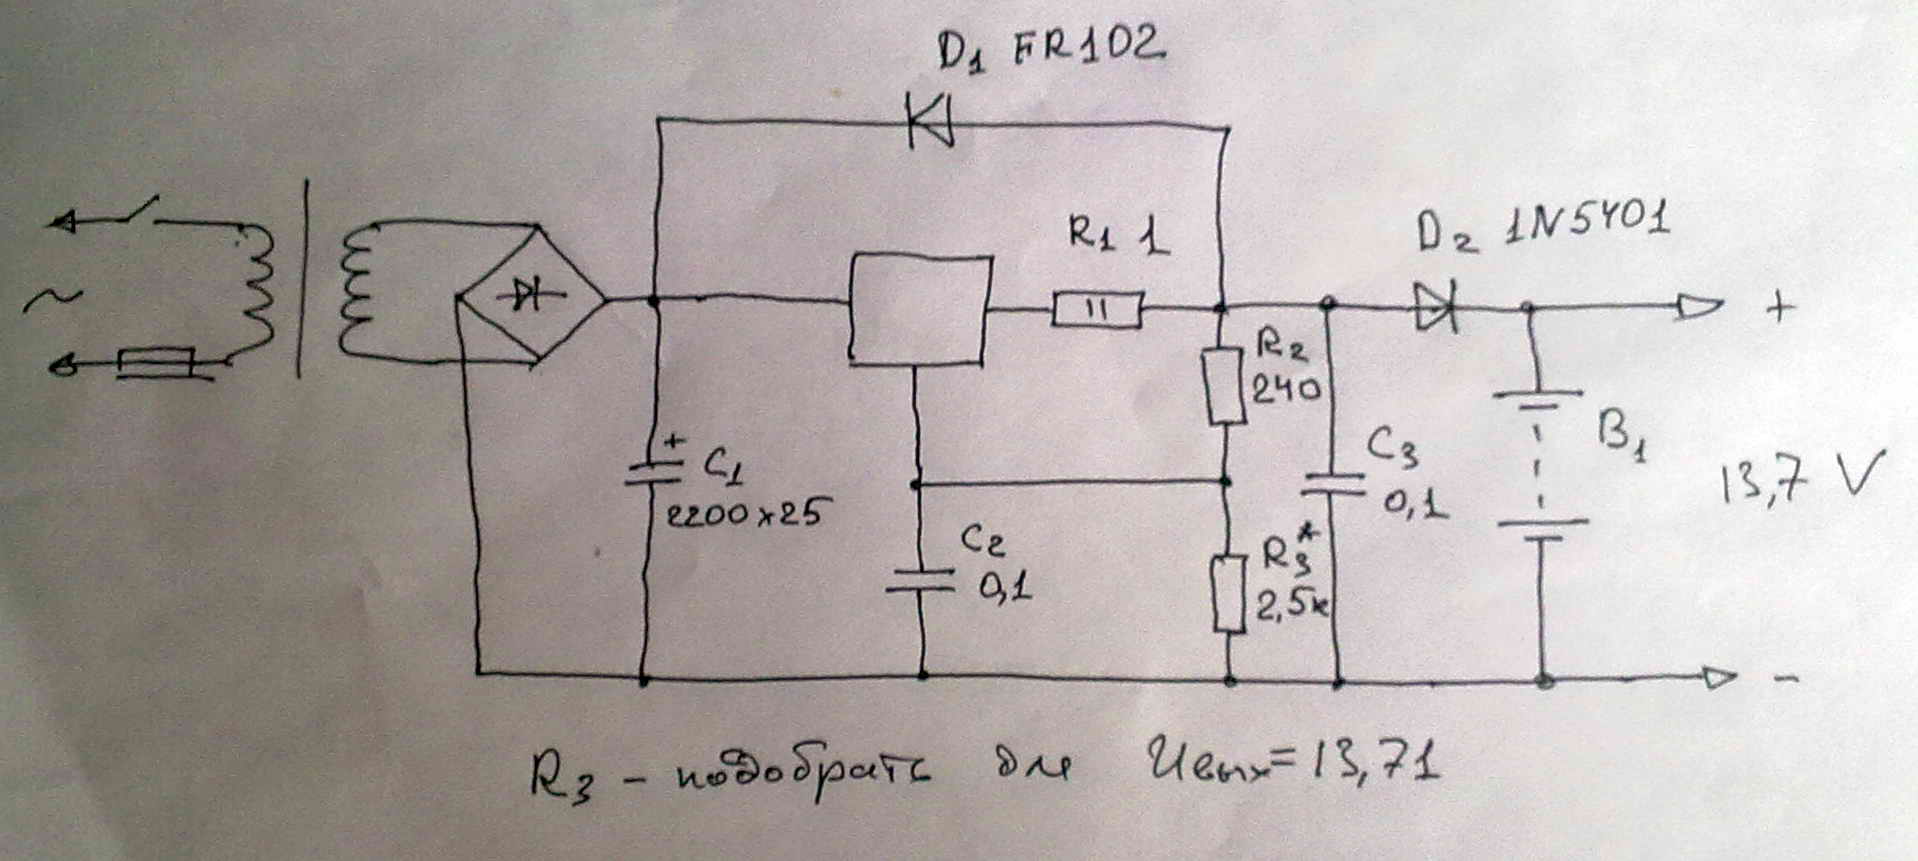 D1 FR102
R1 1
D2 1N5401
~
+
R2
240
+
C1
2200x25
C3
0,1
B1
13,7 V
C2
0,1
R3*
2,5к
-
R3 - подобрать для Uвых=13,71